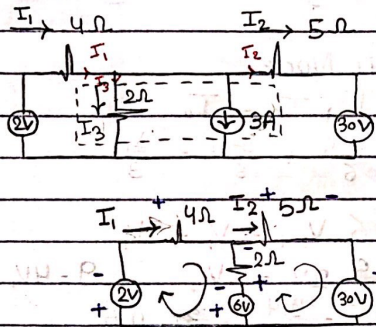 I₁ 4Ω I₂ 5Ω
I₁ I₂
I₃ 2Ω
2V I₃ 3A 30V
I₁ + 4Ω I₂ + 5Ω -
- - 2Ω
2V - + 30V
+ + 6V